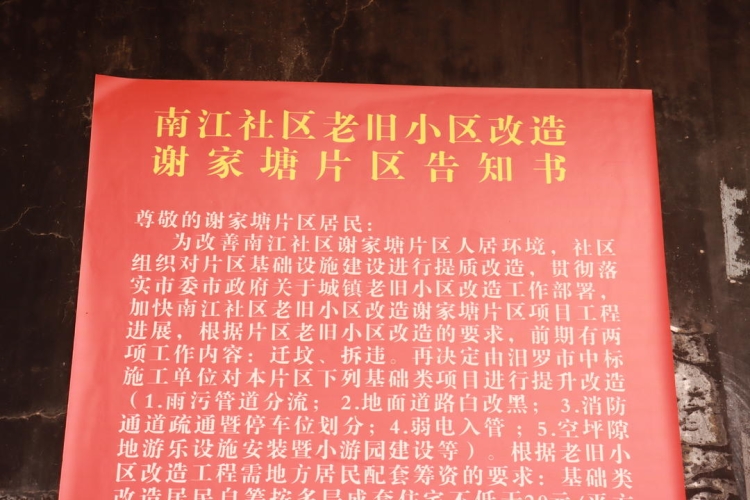 南江社区老旧小区改造
谢家塘片区告知书
尊敬的谢家塘片区居民：
为改善南江社区谢家塘片区人居环境，社区
组织对片区基础设施建设进行提质改造，贯彻落
实市委市政府关于城镇老旧小区改造工作部署，
加快南江社区老旧小区改造谢家塘片区项目工程
进展，根据片区老旧小区改造的要求，前期有两
项工作内容：迁坟、拆违。再决定由汨罗市中标
施工单位对本片区下列基础类项目进行提升改造
（1.雨污管道分流；2.地面道路白改黑；3.消防
通道疏通暨停车位划分；4.弱电入管；5.空坪隙
地游乐设施安装暨小游园建设等）。根据老旧小
区改造工程需地方居民配套筹资的要求：基础类
改造居民自筹按多层成套住宅不低于20元